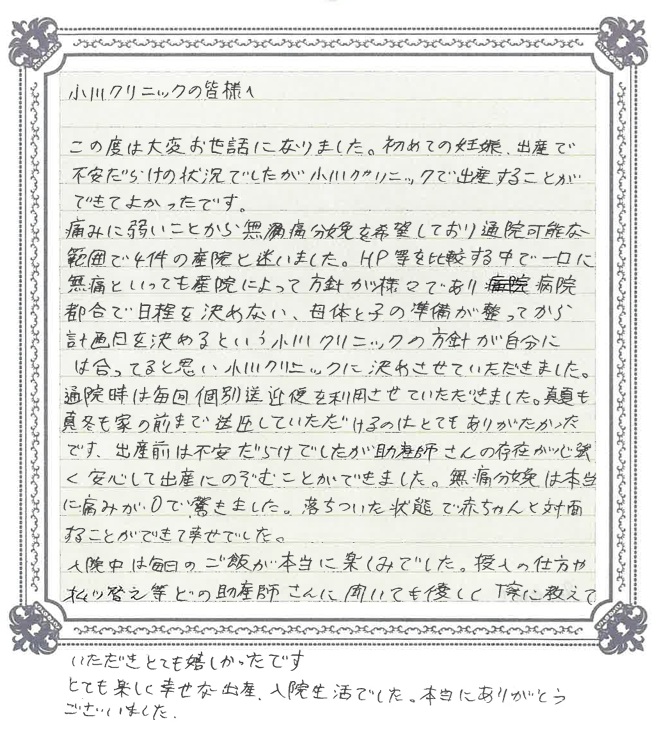 小川クリニックの皆様へ
この度は大変お世話になりました。初めての妊娠、出産で
不安だらけの状況でしたが小川クリニックで出産することが
できてよかったです。
痛みに弱いことから無痛分娩を希望しており通院可能な
範囲で4件の産院と迷いました。HP等を比較する中で一口に
無痛といっても産院によって方針が様々であり病院
都合で日程を決めない、母体と子の準備が整ってから
計画日を決めるという小川クリニックの方針が自分に
は合ってると思い小川クリニックに決めさせていただきました。
通院時は毎回個別送迎便を利用させていただきました。真夏も
真冬も家の前まで送迎していただけるのはとてもありがたかった
です、出産前は不安だらけでしたが助産師さんの存在が心強
く安心して出産にのぞむことができました。無痛分娩は本当
に痛みが0で驚きました。落ちついた状態で赤ちゃんと対面
することができて幸せでした。
入院中は毎日のご飯が本当に楽しみでした。授入の仕方や
等どの助産師さんに聞いても優しく丁寧に教えて
いただきとても嬉しかったです
とても楽しく幸せな出産、入院生活でした。本当にありがとう
ございました.